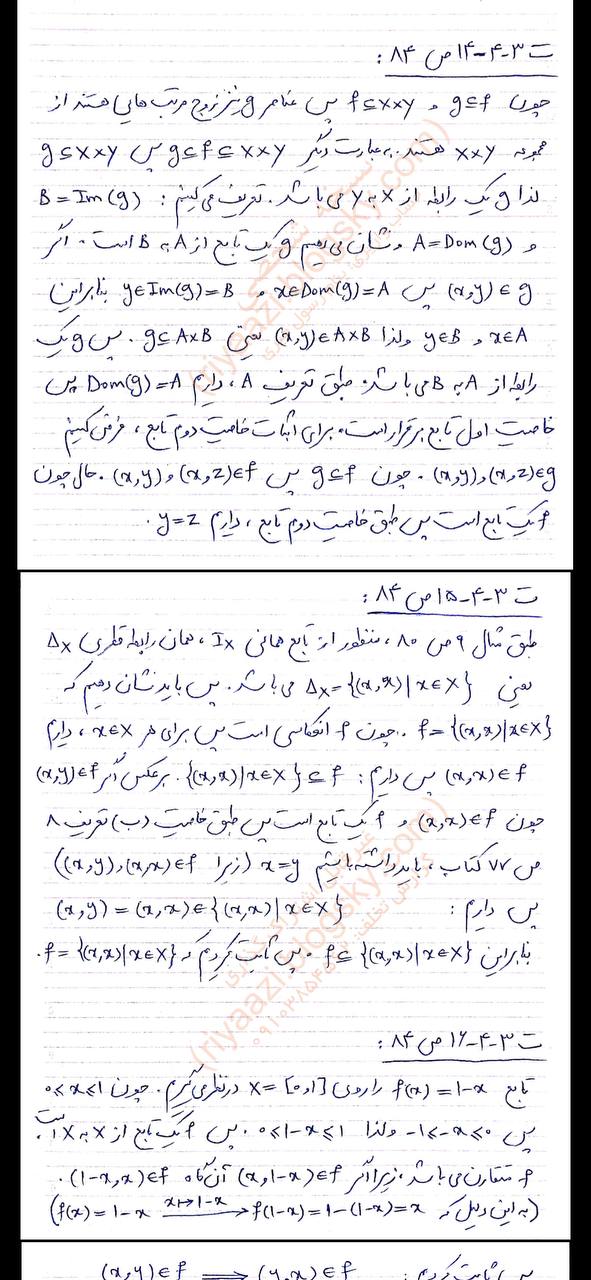 ت ۳-۴-۱۴ ص ۸۴ :
چون g⊆f و f⊆X×Y پس عناصر g نیز زوج مرتب هایی هستند از
مجموعه X×Y هستند. به عبارت دیگر g⊆f⊆X×Y پس g⊆X×Y
لذا g یک رابطه از X به Y می باشد. تعریف می کنیم : B=Im(g)
و A=Dom(g) و نشان می دهیم g یک تابع از A به B است. اگر
(x,y)∈g پس x∈Dom(g)=A و y∈Im(g)=B بنابراین
x∈A و y∈B ولذا (x,y)∈A×B یعنی g⊆A×B . پس g یک
رابطه از A به B می باشد. طبق تعریف A ، داریم Dom(g)=A پس
خاصیت اول تابع برقرار است. برای اثبات خاصیت دوم تابع ، فرض کنیم
(x,y) و (x,z)∈g . چون g⊆f پس (x,y) و (x,z)∈f . حال چون
f یک تابع است پس طبق خاصیت دوم تابع ، داریم y=z .
ت ۳-۴-۱۵ ص ۸۴ :
طبق مثال ۹ ص ۸۰ ، منظور از تابع همانی Ix ، همان رابطه قطری Δx
یعنی Δx={(x,x)|x∈X} می باشد. پس باید نشان دهیم که
f={(x,x)|x∈X} . چون f انعکاسی است پس برای هر x∈X ، داریم
(x,x)∈f پس داریم : {(x,x)|x∈X}⊆f . برعکس اگر (x,y)∈f
چون (x,x)∈f و f یک تابع است پس طبق خاصیت (ب) تعریف ۸
ص ۷۷ کتاب ، باید داشته باشیم x=y (زیرا (x,y),(x,x)∈f)
پس داریم : (x,y)=(x,x)∈{(x,x)|x∈X}
بنابراین f⊆{(x,x)|x∈X} . پس ثابت کردیم که f={(x,x)|x∈X} .
ت ۳-۴-۱۶ ص ۸۴ :
تابع f(x)=1-x را روی X=[۰و۱] در نظر می گیریم . چون ۰≤x≤۱
پس -۱≤-x≤۰ ولذا ۰≤۱-x≤۱ . پس f یک تابع از X به X است ،
f متقارن می باشد ، زیرا اگر (x,1-x)∈f آن گاه (1-x,x)∈f .
(به این دلیل که f(x)=1-x —x↦1-x→ f(1-x)=1-(1-x)=x)
(x,y)∈f ⟹ (y,x)∈f
(riyaazi.blogsky.com)
(riyaazi.blogsky.com)